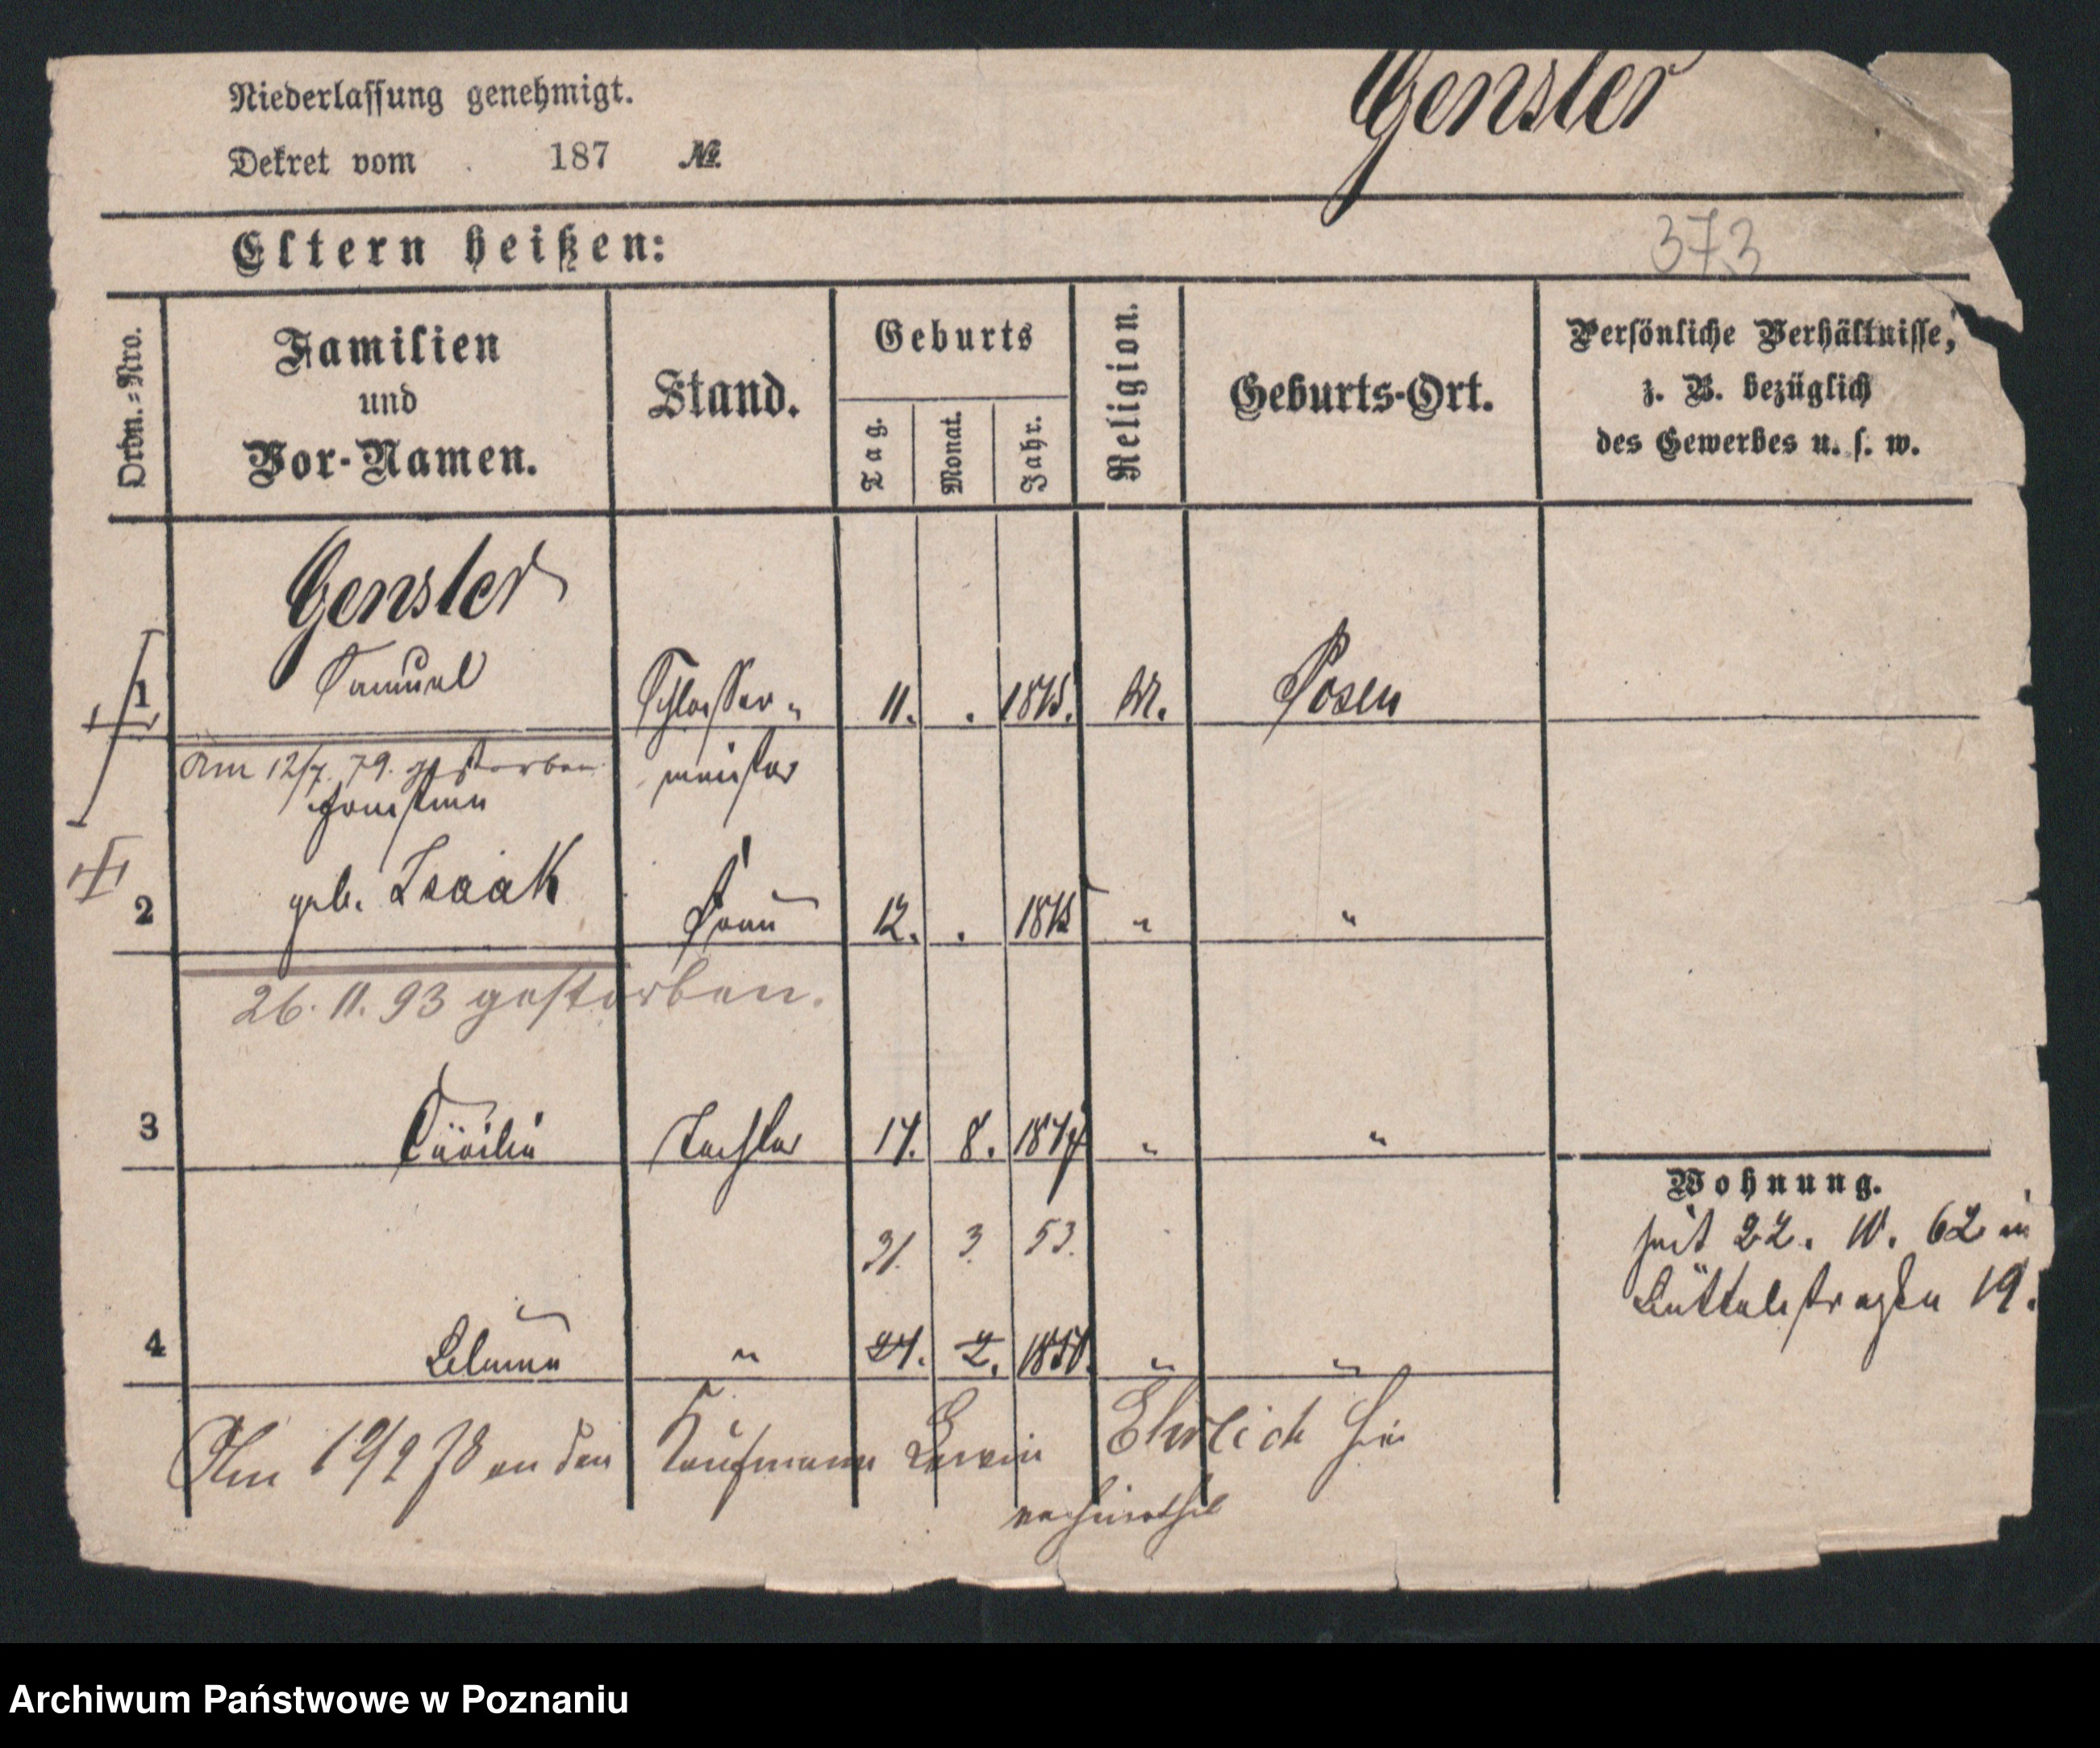 Niederlassung genehmigt.
Gensler
Dekret vom . 187 №
Eltern heißen:
373
Ordn.-Nro.
Familien
und
Vor-Namen.
Stand.
Geburts
Tag.
Monat.
Jahr.
Religion.
Geburts-Ort.
Persönliche Verhältnisse,
z. B. bezüglich
des Gewerbes u. s. w.
Gensler
1 Samuel Schlosser- 11. . Posen
meister
Am 12/7. 79. gestorben
geb. Isaak
2 Frau 12. . " "
26. 11. 93 gestorben.
3 Cäcilie Tochter 17. 8. " "
31. 3. 53.
4 " 2. " "
Wohnung.
seit 22. 10. 62 in
Büttelstraße 19.
Am 19/2 78 an den Kaufmann Ehrlich hier
verheirathet
Archiwum Państwowe w Poznaniu